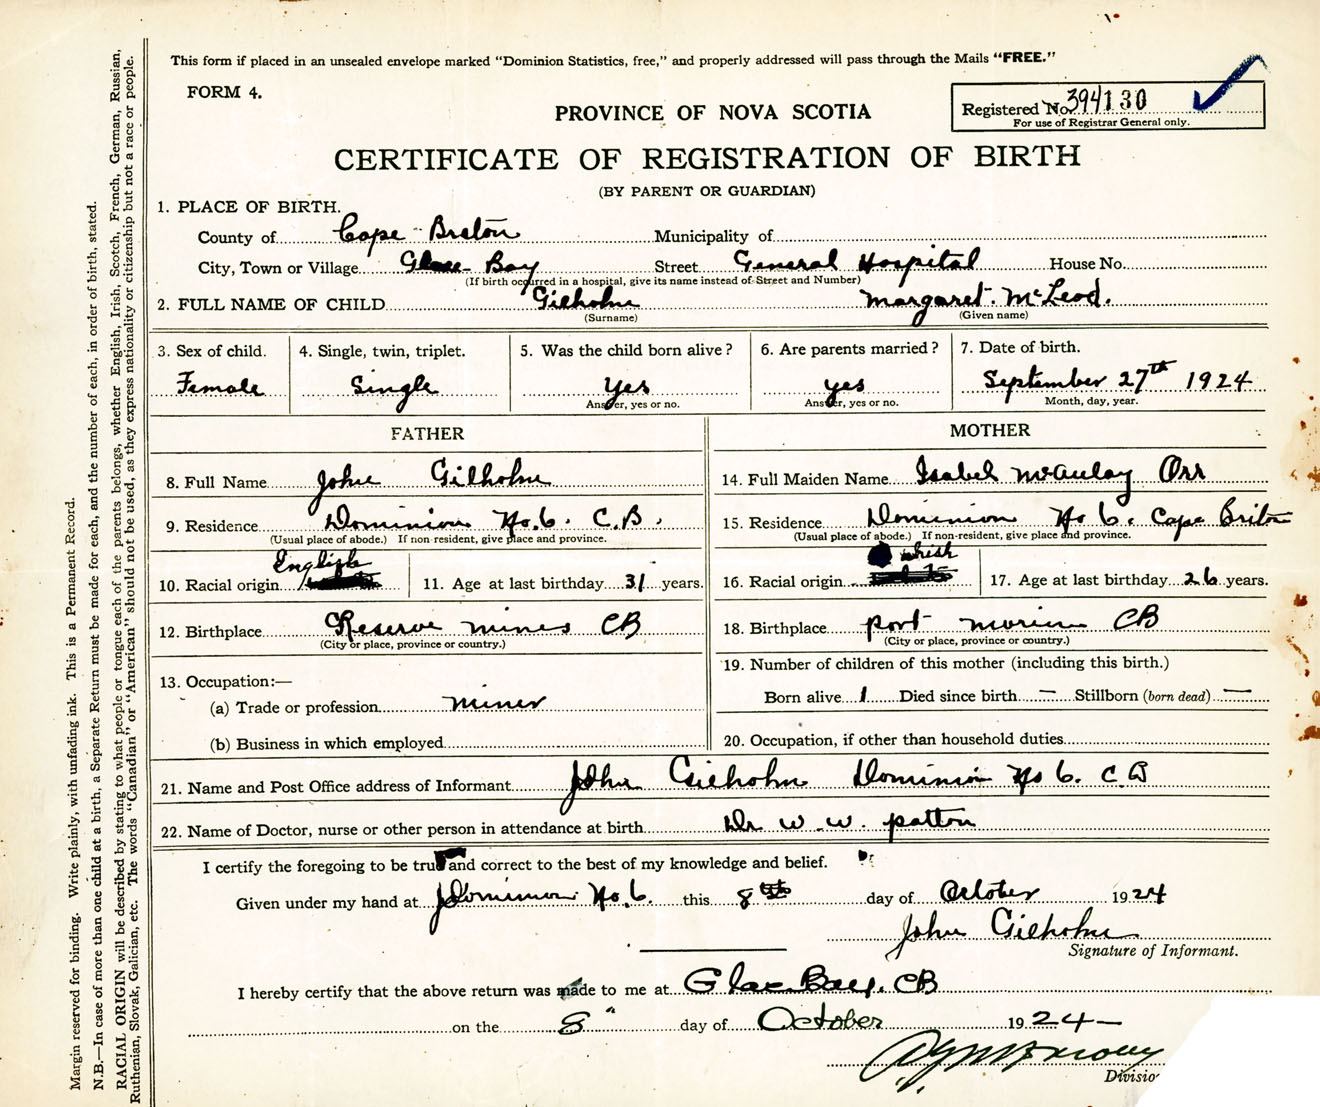 This form if placed in an unsealed envelope marked "Dominion Statistics, free," and properly addressed will pass through the Mails "FREE."
FORM 4.
PROVINCE OF NOVA SCOTIA
Registered No. 394130
For use of Registrar General only.
CERTIFICATE OF REGISTRATION OF BIRTH
(BY PARENT OR GUARDIAN)
1. PLACE OF BIRTH.
County of Cape Breton Municipality of
City, Town or Village Glace Bay Street General Hospital House No.
(If birth occurred in a hospital, give its name instead of Street and Number)
2. FULL NAME OF CHILD Gilholm Margaret McLeod.
(Surname) (Given name)
3. Sex of child. 4. Single, twin, triplet. 5. Was the child born alive? 6. Are parents married? 7. Date of birth.
Female Single Yes yes September 27th 1924
Answer, yes or no. Answer, yes or no. Month, day, year.
FATHER MOTHER
8. Full Name John Gilholm
14. Full Maiden Name Isabel McAulay Orr
9. Residence Dominion No. 6. C.B.
(Usual place of abode.) If non-resident, give place and province.
15. Residence Dominion No 6. Cape Briton
(Usual place of abode.) If non-resident, give place and province.
10. Racial origin English 11. Age at last birthday 31 years.
16. Racial origin Irish 17. Age at last birthday 26 years.
12. Birthplace Reserve mines CB
(City or place, province or country.)
18. Birthplace port morien CB
(City or place, province or country.)
13. Occupation:—
(a) Trade or profession miner
(b) Business in which employed
19. Number of children of this mother (including this birth.)
Born alive 1 Died since birth — Stillborn (born dead) —
20. Occupation, if other than household duties
21. Name and Post Office address of Informant John Gilholm Dominion No 6. C B
22. Name of Doctor, nurse or other person in attendance at birth Dr W. W. patton
I certify the foregoing to be true and correct to the best of my knowledge and belief.
Given under my hand at Dominion No. 6. this 8th day of October 1924
John Gilholm
Signature of Informant.
I hereby certify that the above return was made to me at Glace Bay. CB
on the 8" day of October 1924—
Margin reserved for binding. Write plainly, with unfading ink. This is a Permanent Record.
N.B.—In case of more than one child at a birth, a Separate Return must be made for each, and the number of each, in order of birth, stated.
RACIAL ORIGIN will be described by stating to what people or tongue each of the parents belongs, whether English, Irish, Scotch, French, German, Russian,
Ruthenian, Slovak, Galician, etc. The words "Canadian" or "American" should not be used, as they express nationality or citizenship but not a race or people.